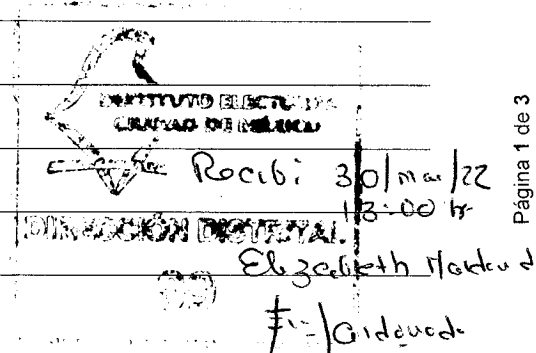 INSTITUTO ELECTORAL
CIUDAD DE MÉXICO
Recibi 30/mar/22
13:00 hr
DIRECCIÓN DISTRITAL
Elizabeth
Página 1 de 3